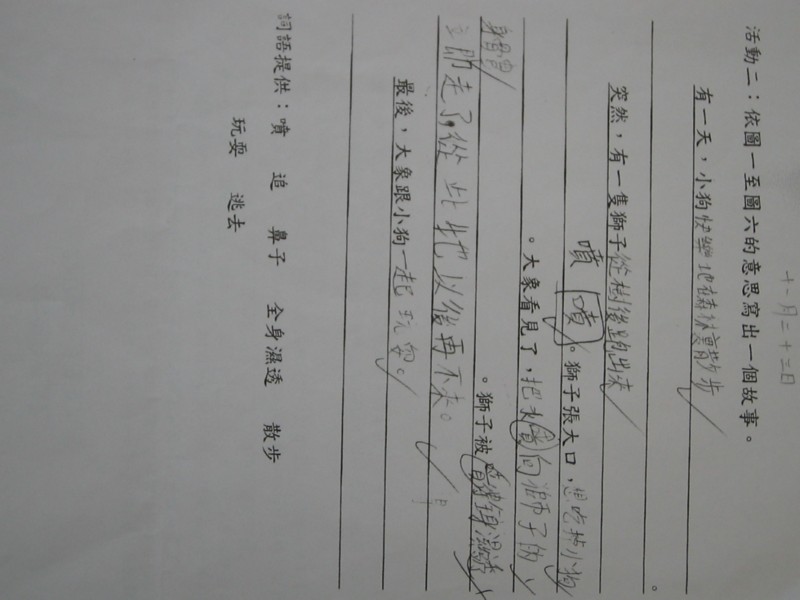 十一月二十三日
活動二：依圖一至圖六的意思寫出一個故事。
有一天，小狗快樂地在森林裏散步
突然，有一隻獅子從樹後跑出來
。
噴 噴。獅子張大口，想吃掉小狗
。大象看見了，把水噴向獅子的
身體。獅子被噴得全身濕透
立即走了，從此牠以後再不來。
最後，大象跟小狗一起玩耍。
詞語提供：噴 追 鼻子 全身濕透 散步
玩耍 逃去